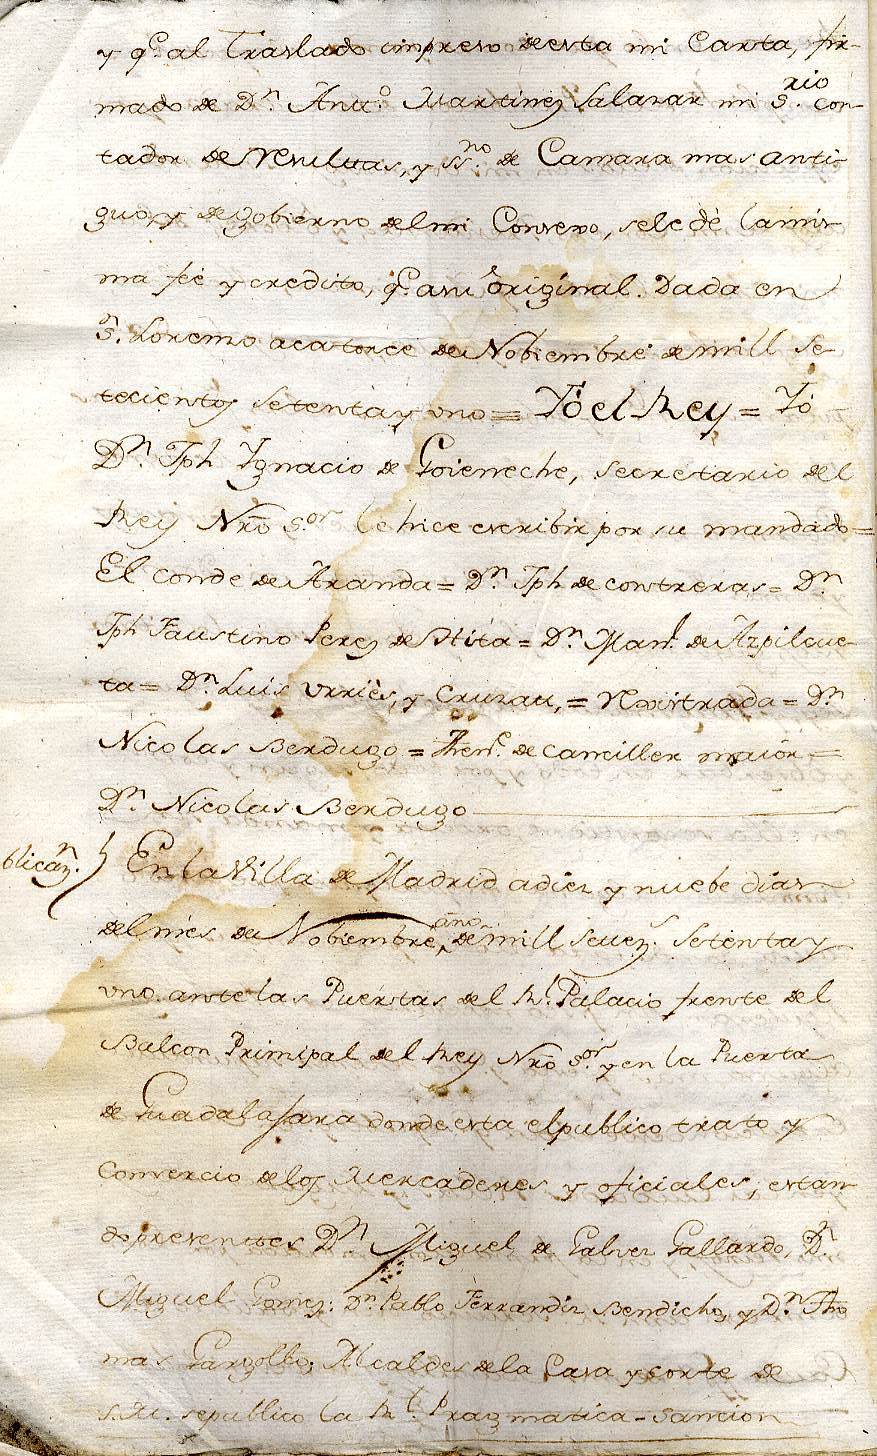 y qe. al Traslado impreso de esta mi Carta, fir-
mado de Dn. Anto. Martinez Salazar mi Srio. Con-
tador de Resultas, y SSno. de Camara mas anti-
guo, y de gobierno del mi Consexo, sele dè lamis-
ma feè y credito, qe. asu original. Dada en
Sn. Lorenzo acatorce de Nobiembre de mill se-
tecientos setenta y uno = Yo el Rey = Yo
Dn. Jph Ygnacio de Goieneche, secretario del
Rey Nrõ Sor. le hice escribir por su mandado=
El Conde de Aranda = Dn. Jph de contreras = Dn.
Jph Faustino Perez de Hita = Dn. Manl. de Azpilcue-
ta = Dn. Luis Urriès, y Cruzat, = Rexistrada = Dn.
Nicolas Berdugo = Thente. de canciller maior =
Dn. Nicolas Berdugo
blicazn. En la Villa de Madrid adiez y nuebe dias
del mes de Nobiembre, año de mill setezs. setenta y
uno. ante las Puertas del Rl. Palacio frente del
Balcon Principal del Rey Nrõ Sor. y en la Puerta
de Guadalajara donde esta el publico trato y
Comercio delos Mercaderes y oficiales; estan-
do presentes Dn. Miguel de Galvez Gallardo, Dn.
Miguel Gomez: Dn. Pablo Ferrandiz Bendicho, y Dn. Tho
mas Gargollo; Alcaldes dela Casa y corte de
S.M. sepublico la Rl. Pragmatica-sancion